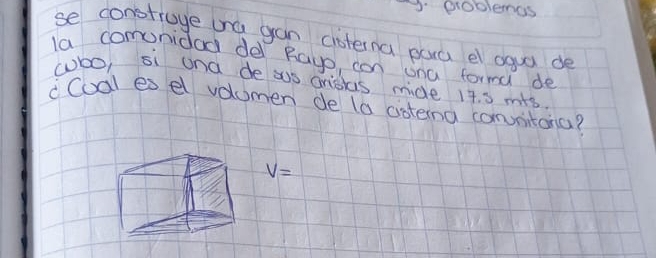 g. problemas
se construye una gran cisterna para el agua de
la comunidad del Rayo, con una forma de
cubo, si una de sus aristas mide 17.5 mts.
¿Cual es el volumen de la cisterna comunitaria?
V=